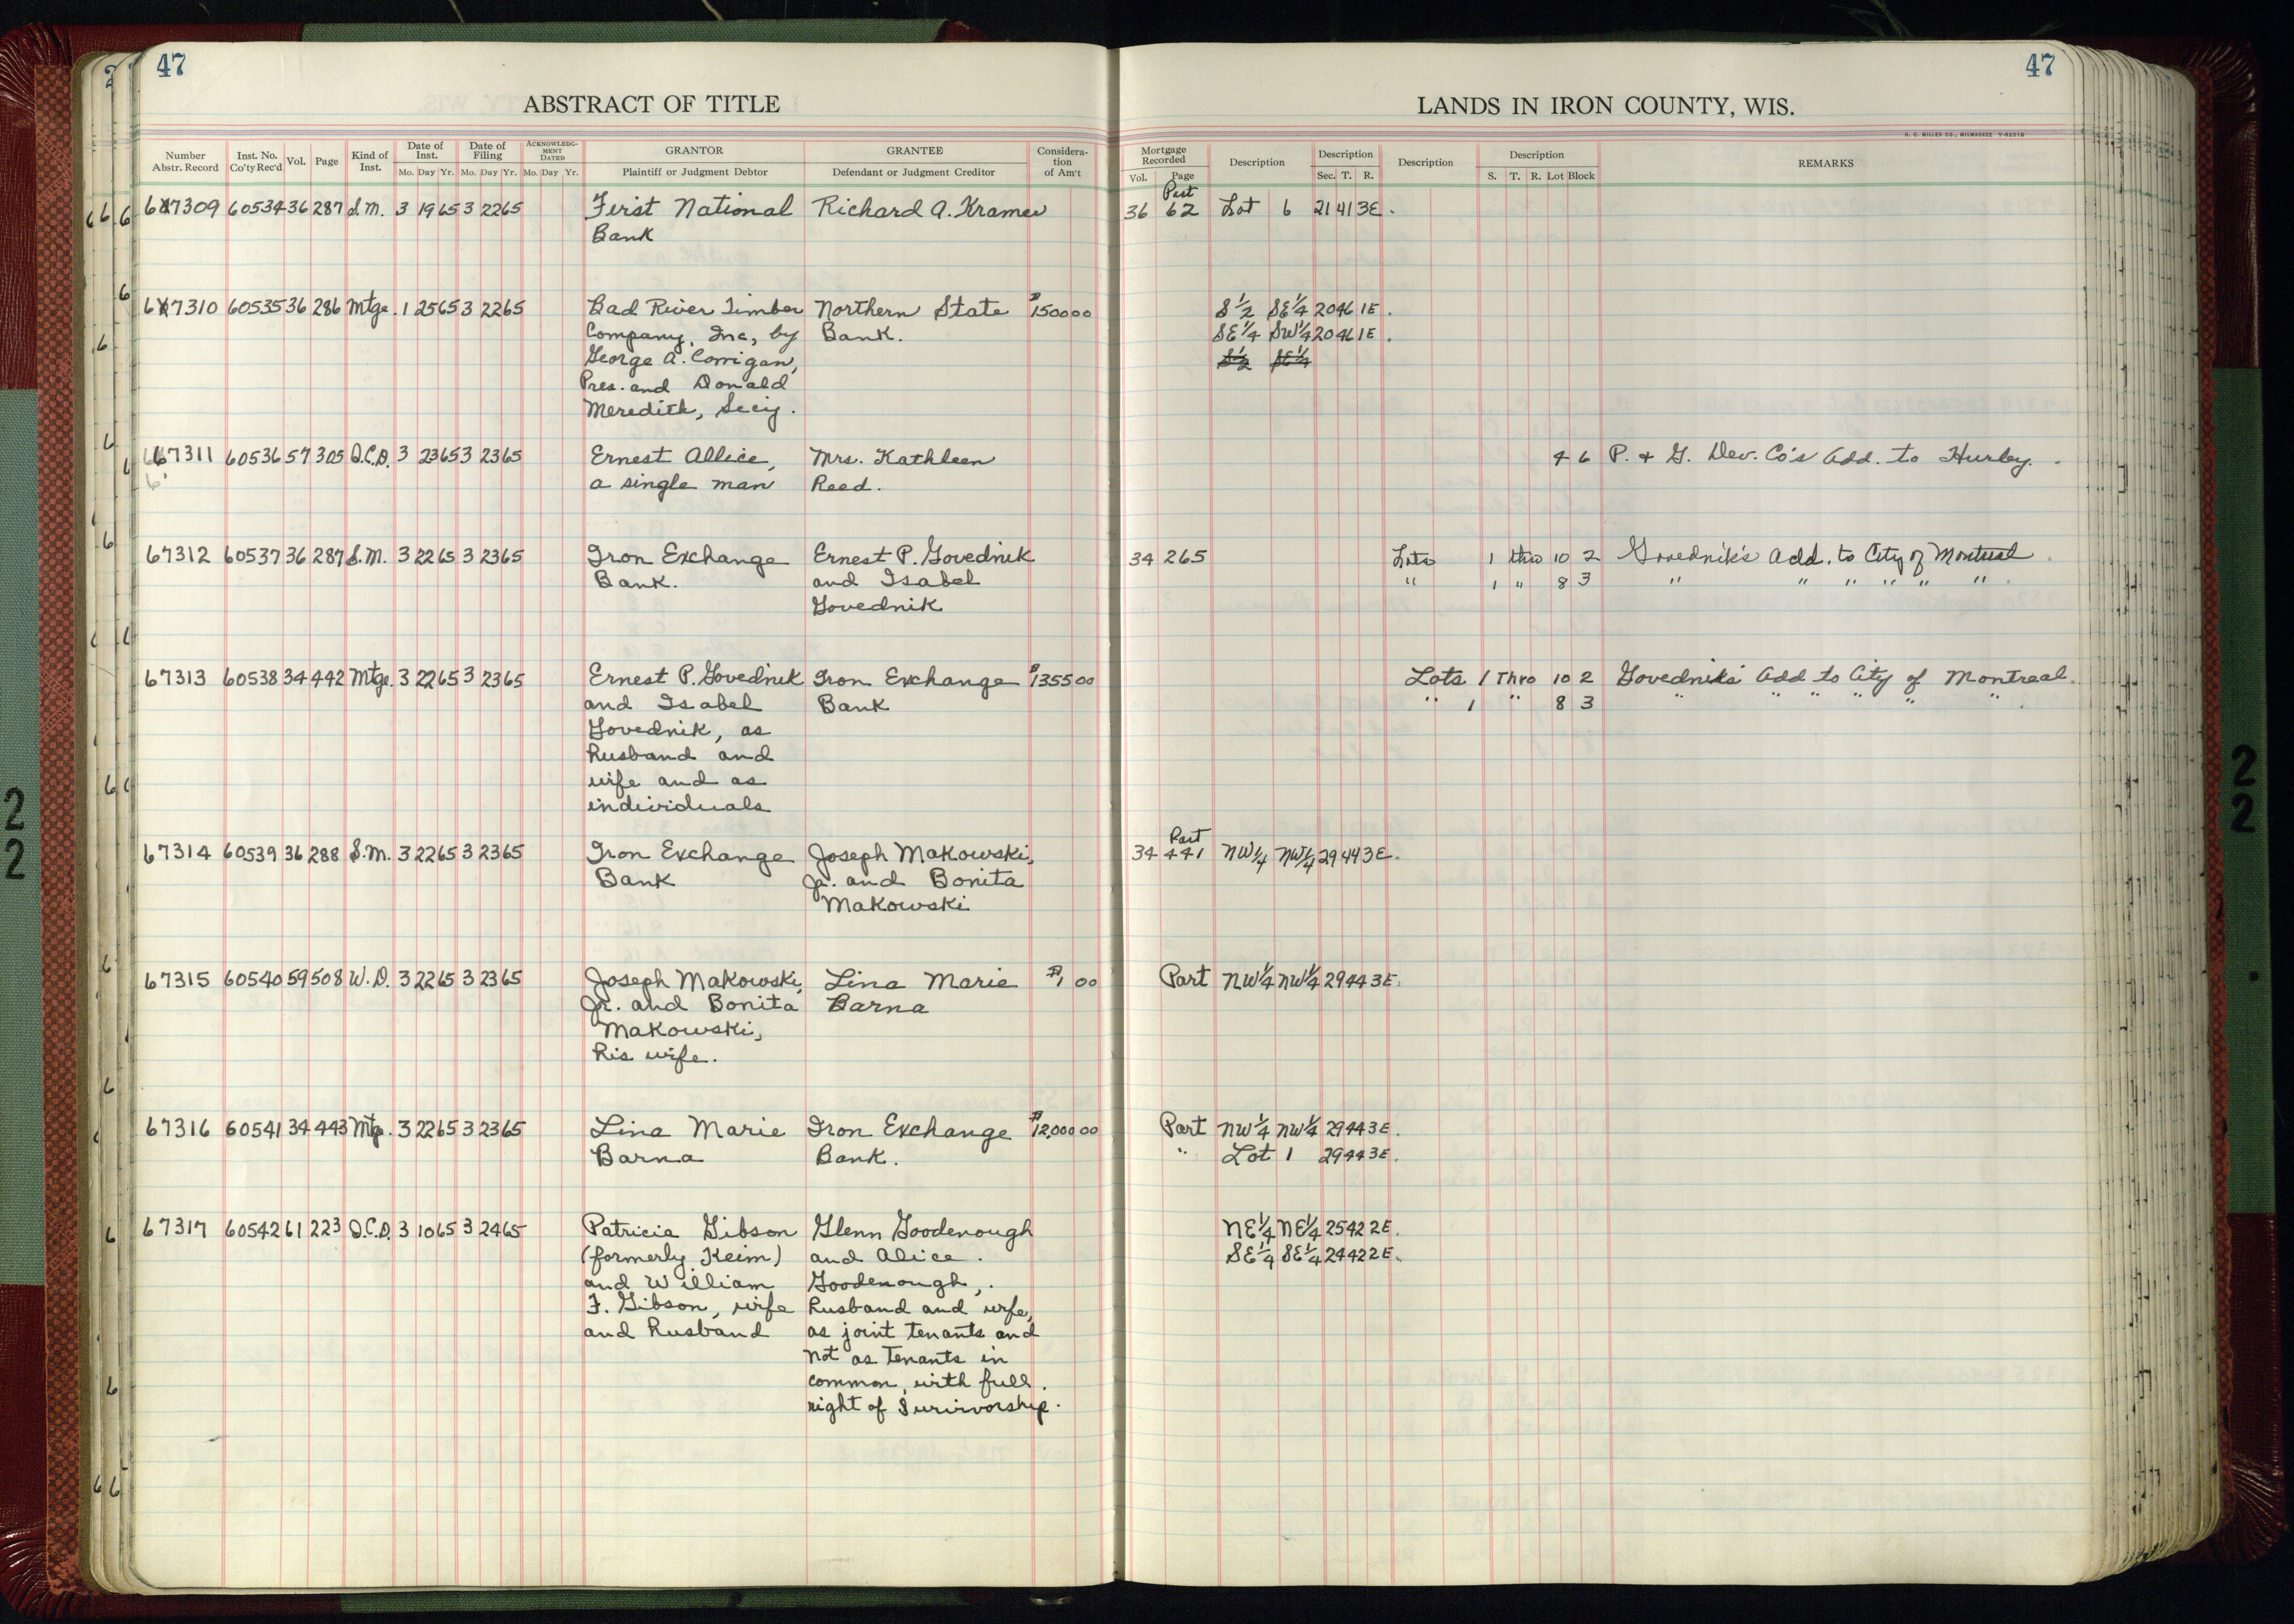 47
47
ABSTRACT OF TITLE
LANDS IN IRON COUNTY, WIS.
H. C. MILLER CO., MILWAUKEE
Number Abstr. Record Inst. No. Co'ty Rec'd Vol. Page Kind of Inst. Date of Inst. Mo. Day Yr. Date of Filing Mo. Day Yr. ACKNOWLEDGMENT DATED Mo. Day Yr. GRANTOR Plaintiff or Judgment Debtor GRANTEE Defendant or Judgment Creditor Consideration of Am't Mortgage Recorded Vol. Page Description Description Sec. T. R. Description Description S. T. R. Lot Block REMARKS
67309 60534 36 287 S.M. 3 19 65 3 22 65 First National Richard A. Kramer 36 62 Lot 6 21 41 3E.
Bank
67310 60535 36 286 Mtge. 1 25 65 3 22 65 Bad River Timber Northern State $1500 00 S½ SE¼ 20 46 1E.
Company, Inc, by Bank. SE¼ SW¼ 20 46 1E.
George A. Corrigan, S½ SE¼
Pres. and Donald
Meredith, Secy.
67311 60536 57 305 Q.C.D. 3 23 65 3 23 65 Ernest Allice, Mrs. Kathleen 4 6 P. & G. Dev. Co's Add. to Hurley.
a single man Reed.
67312 60537 36 287 S.M. 3 22 65 3 23 65 Iron Exchange Ernest P. Govednik 34 265 Lots 1 thro 10 2 Govednik's Add. to City of Montreal
Bank. and Isabel " 1 " 8 3 " " " " " "
Govednik
67313 60538 34 442 Mtge. 3 22 65 3 23 65 Ernest P. Govednik Iron Exchange $1355 00 Lots 1 Thro 10 2 Govednik's Add to City of Montreal.
and Isabel Bank " 1 " 8 3 " " " " " "
Govednik, as
husband and
wife and as
individuals
67314 60539 36 288 S.M. 3 22 65 3 23 65 Iron Exchange Joseph Makowski, 34 441 Part NW¼ NW¼ 29 44 3E.
Bank Jr. and Bonita
Makowski
67315 60540 59 508 W.D. 3 22 65 3 23 65 Joseph Makowski, Lina Marie $1 00 Part NW¼ NW¼ 29 44 3E.
Jr. and Bonita Barna
Makowski,
his wife.
67316 60541 34 443 Mtg. 3 22 65 3 23 65 Lina Marie Iron Exchange $12,000 00 Part NW¼ NW¼ 29 44 3E.
Barna Bank. " Lot 1 29 44 3E.
67317 60542 61 223 Q.C.D. 3 10 65 3 24 65 Patricia Gibson Glenn Goodenough NE¼ NE¼ 25 42 2E.
(formerly Keim) and Alice SE¼ SE¼ 24 42 2E.
and William Goodenough,
F. Gibson, wife husband and wife,
and husband as joint tenants and
not as tenants in
common, with full
right of Survivorship.
2
2
2
2